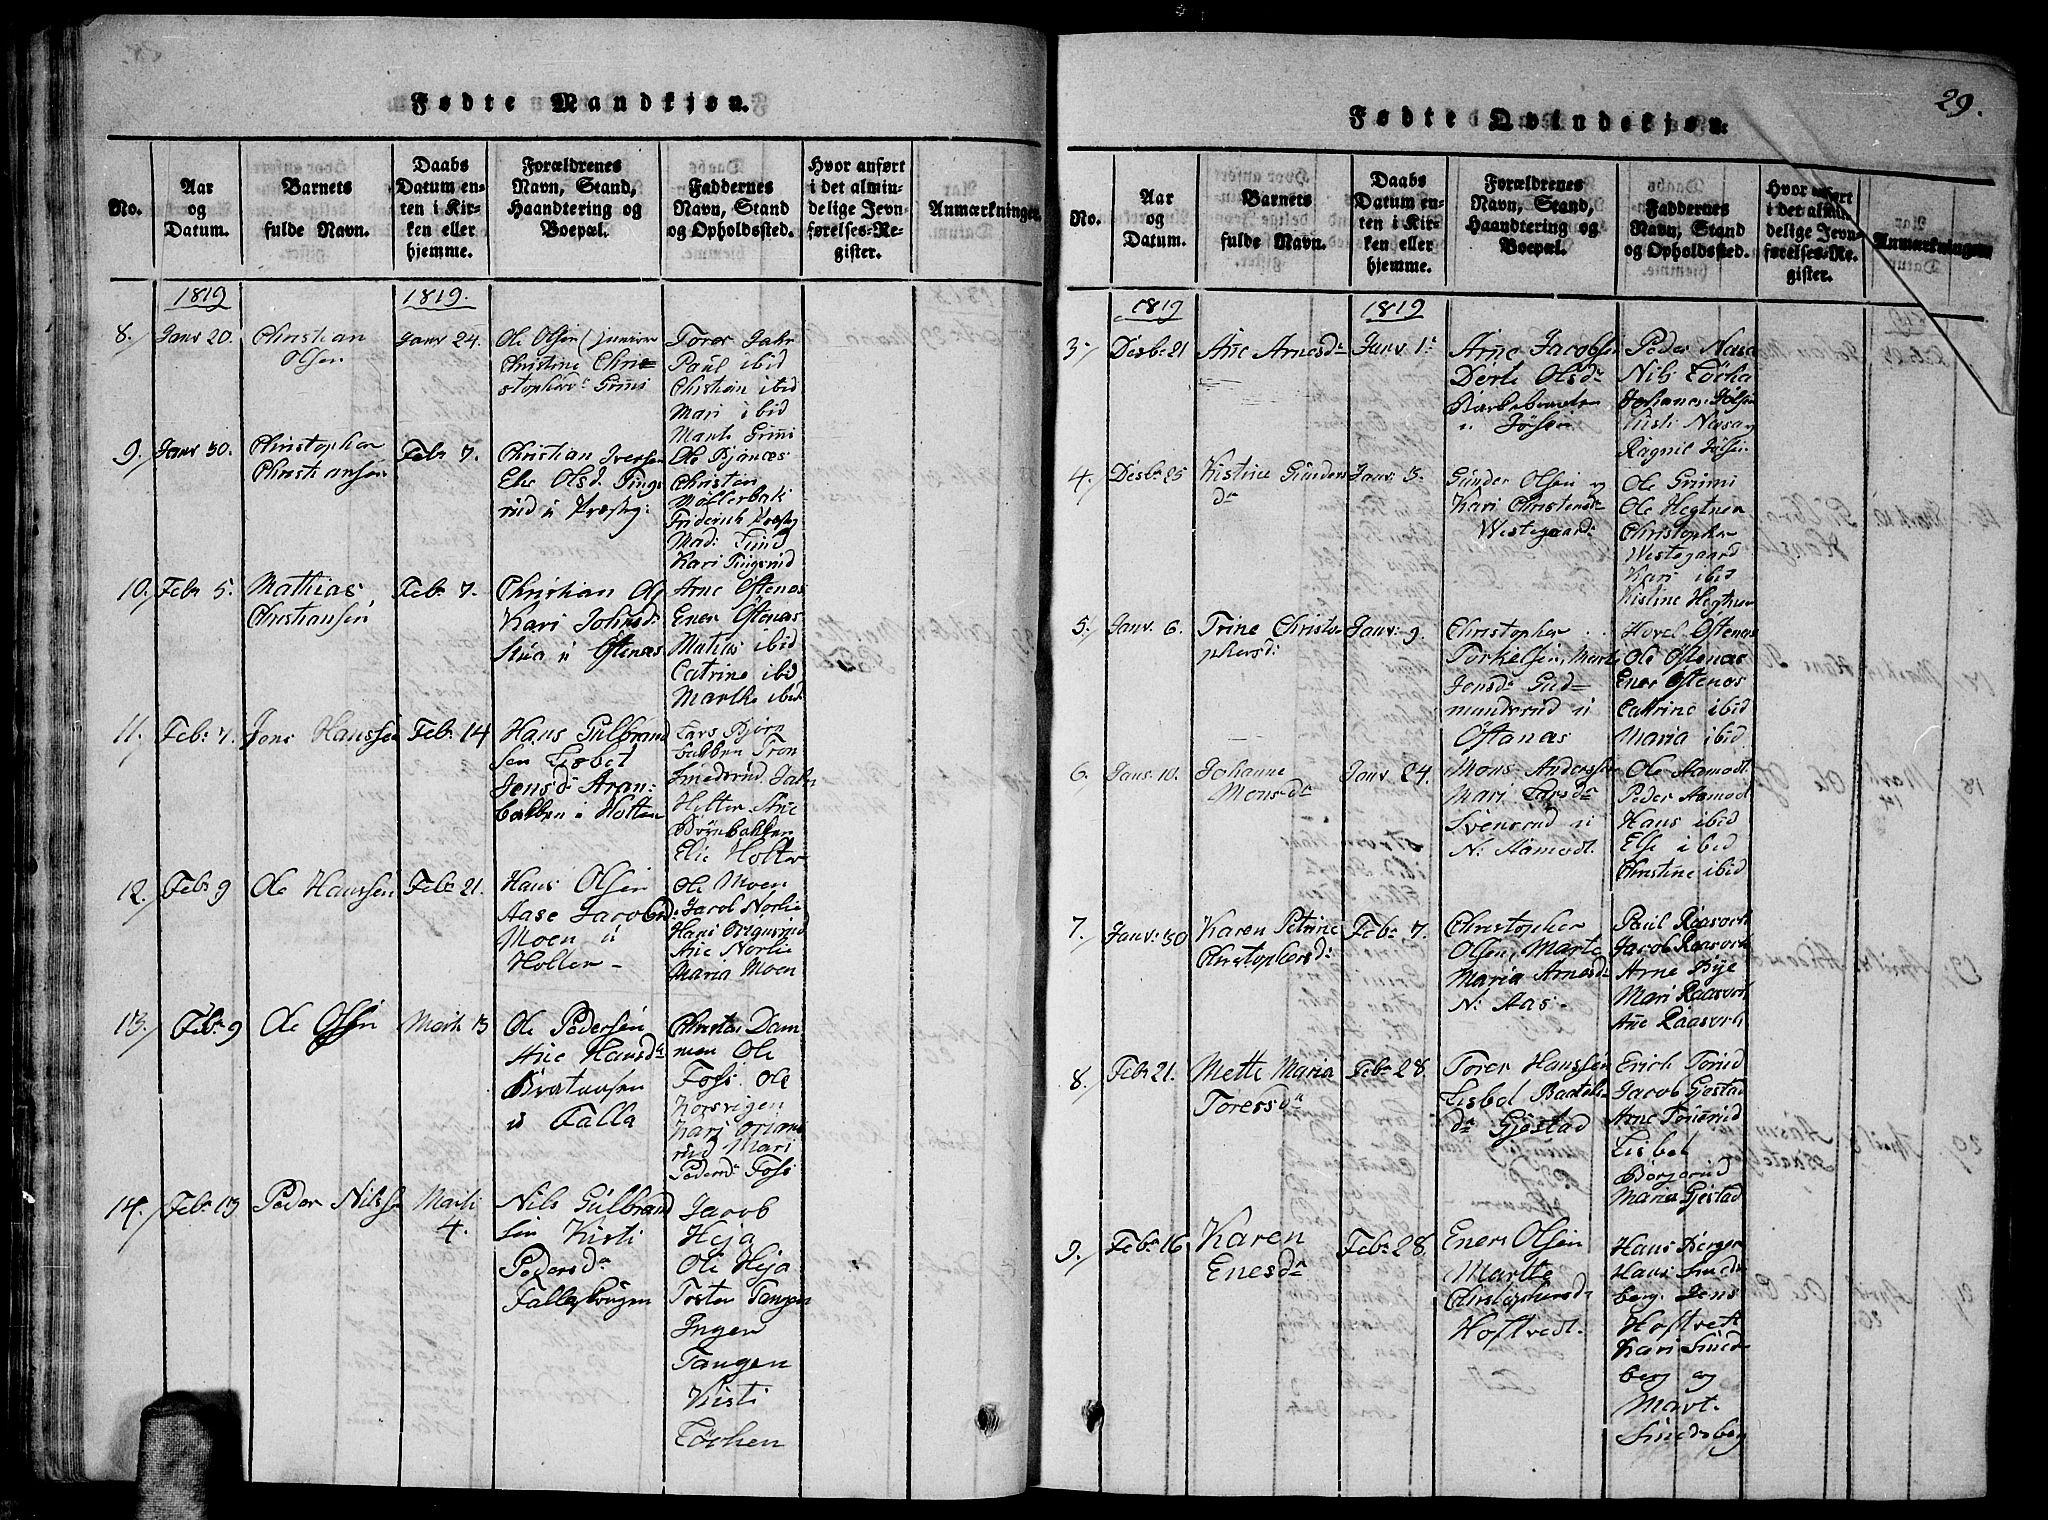 Fødte Mandkjøn.
No.
Aar
og
Datum.
Barnets
fulde Navn.
Daabs
Datum en-
ten i Kir-
ken eller
hjemme.
Forældrenes
Navn, Stand,
Haandtering og
Boepæl.
Faddernes
Navn, Stand
og Opholdssted.
Hvor anført
i det almin-
delige Jevn-
førelses-Re-
gister.
Anmærkninger.
1819
1819.
8.
Janv 20.
Christian
Olsen
Janv 24.
Ole Olsen (junior
Christine Chri=
stophersd: Grini
Torer
Poul ibid
Christian ibid
Mari ibid
Marthe Grini
9.
Janv 30.
Christopher
Christiansen
Feb: 7.
Christian Iversen
Elie Olsd. Tings
rud u Præstg:
Ole Bjønæs
Christian
Møllerbak
Friderich Præstg
Mad:
Kari Tingsrud
10.
Feb: 5.
Mathias
Christiansen
Feb: 7.
Christian Ol
Kari Johnsd:
Stua u Østenas
Arne Østenas
Ener Østenas
Mathis ibid
Catrine ibid
Marthe ibid
11.
Feb: 7.
Jens Hanssen
Feb: 14
Hans Gulbrand
sen Lisbet
Jensd: Aran-
bakken u Holter
Lars Bjørn
bakken Tron
Smedsrud.
Holter Ane
Bjørnbakken
Elie Holter
12.
Feb: 9
Ole Hanssen
Feb: 21.
Hans Olsen
Aase Jacobsd:
Moen u
Holter-
Ole Moen
Jacob Norlie
Hans
Ane Norlie
Maria Moen
13.
Feb: 9
Ole Olsen
Marti 13
Ole Pedersen
Ane Hansd:
Bratansen
u Falla
Christen Dam
men Ole
Fossi Ole
Korsvigen
Kari
rud Mari
Pedersd: Fossi
14.
Feb: 13
Peder Nilsse
Marti
4.
Nils Gulbrand
sen Kisti
Pedersd:
Falla
Jacob
Heja
Ole Heja
Toster Tangen
Inger
Tangen
Kisti
Løchen
29.
Fødte Qvindekjøn.
No.
Aar
og
Datum.
Barnets
fulde Navn.
Daabs
Datum en-
ten i Kir-
ken eller
hjemme.
Forældrenes
Navn, Stand,
Haandtering og
Boepæl.
Faddernes
Navn, Stand
og Opholdssted.
Hvor anført
i det almin-
delige Jevn-
førelses-Re-
gister.
Anmærkninger.
1819
1819
3
Desb: 21
Ane Arnesd:
Janv 1:
Arne Jacobsen
Dorte Olsd:
u Jølsen
Peder Nasa
Nils Løcka
Johanes Jølsen
Kisti Nasa
Ragnil Jølsen
4.
Desb: 25
Kistine Gunders
d:
Janv 3.
Gunder Olsen og
Kari Christensd:
Westegaard:
Ole Grini
Ole Hegtnen
Christopher
Westegaard
Kari ibid
Kistine Hegtnen
5.
Janv. 6.
Trine Christo-
phersd:
Janv: 9.
Christopher
Torkelsen, Marte
Jensd: Gud=
mundsrud u
Østanas
Hovel Østenas
Ole Østenas
Ener Østenas
Catrine ibid
Maria ibid
6.
Janv: 10.
Johanne
Monsd:
Janv 24.
Mons Andersen
Mari Larsd:
Svensrud u
N: Aamodt.
Ole Aamodt
Peder Aamodt
Hans ibid
Else ibid
Christine ibid
7.
Janv: 30
Karen Petrine
Christophersd:
Feb: 7.
Christopher
Olsen, Marte
Maria Arnesd:
N: Aas-
Paul Raasvoch
Jacob Raasvoch
Arne Bye
Mari Raasvoch
Ane Raasvoch
8.
Feb: 21.
Mette Maria
Toresd:
Feb: 28.
Torer Hanssen
Lisbet Baatels
d: Gjestad
Erich
Jacob Gjestad
Arne
Lisbet
Borgerud
Maria Gjestad
9.
Feb: 16
Karen
Enesd:
Feb: 28
Ener Olsen
Marthe
Christophersd:
Hoftvedt.
Hans Berger
Hans Smeds
berg. Jens
Hoftvet
Kari Smeds
berg og
Mart.
Smedsberg